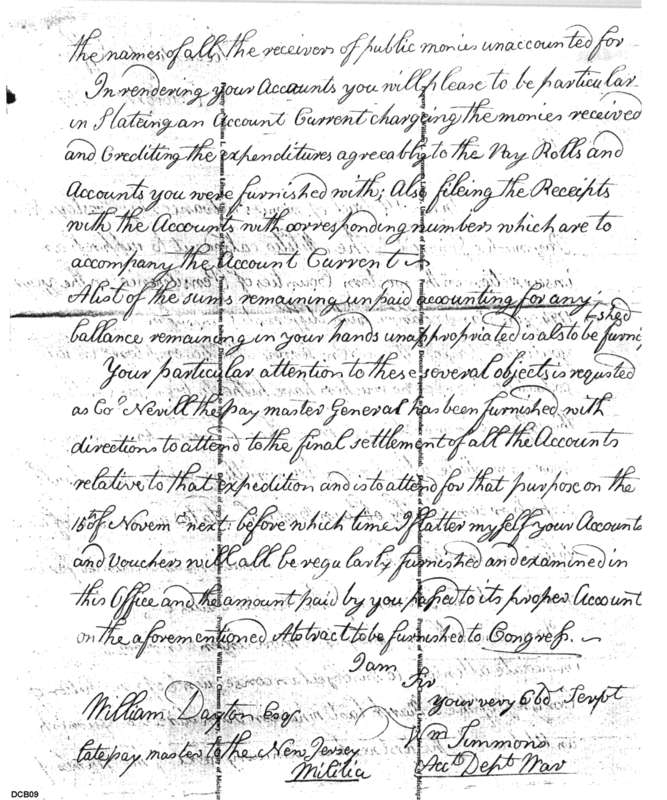 the names of all the receivers of public monies unaccounted for
In rendering your Accounts you will please to be particular
in Stateing an Account Current chargeing the monies received
and Crediting the expenditures agreeably to the Pay Rolls and
Accounts you were furnished with; Also fileing the Receipts
with the Accounts with corresponding numbers which are to
accompany the Account Current
A list of the sums remaining unpaid accounting for any
ballance remaining in your hands unappropriated is also to be furnished
Your particular attention to these several objects is requsted
as Colo Nevill the pay master General has been furnished with
directions to attend to the final settlement of all the Accounts
relative to that expedition and is to attend for that purpose on the
15th of Novem next before which time I flatter myself your Accounts
and Vouchers will all be regularly furnished and examined in
this Office and the amount paid by you passed to its proper Account
on the aforementioned Abstract to be furnished to Congress.
I am
Sir
your very Obd Servt
William Dayton Esqr
Wm Simmons
late pay master to the New Jersey
Acct Dept War
Militia
DCB09